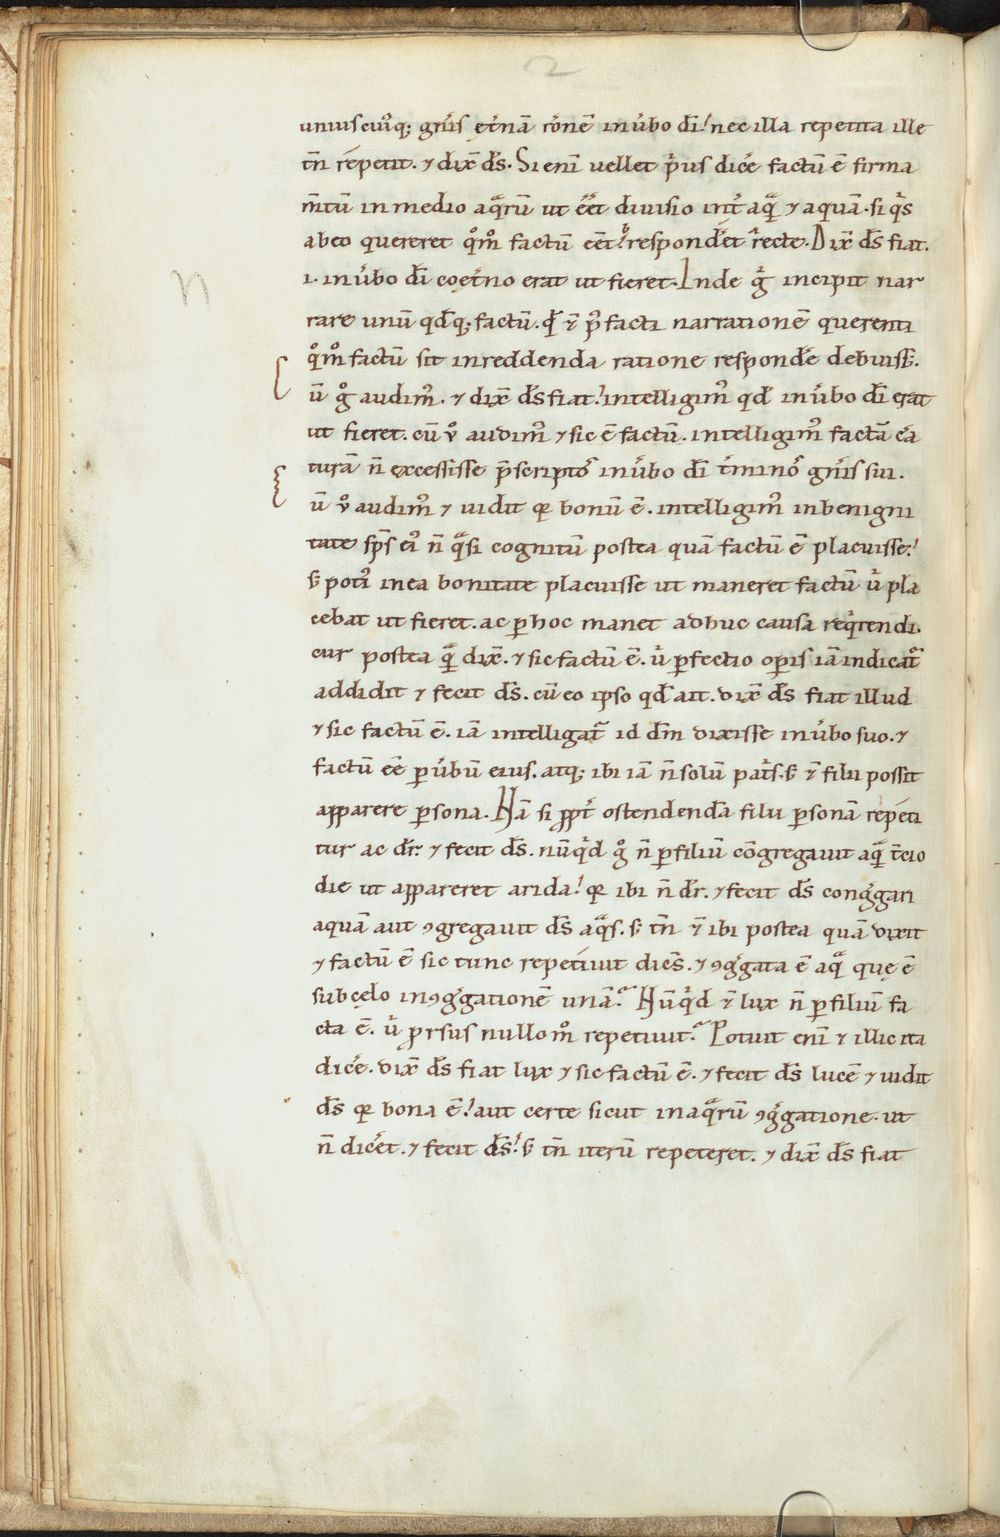 2
uniuscui᾽q; gn̄is ęt̄nā rōnē inu̾bo dī! nec illa repetita ille
tn̄ repetit. ⁊ dix̄ d̄s. Si enī uellet p͛us dic̄e factū ē firma
m̄tū in medio aqͣrū ut ēēt diuisio int̄ aq͛ ⁊ aquā. si q͛s
ab eo quereret q°m° factū eēt! respond̄et recte. Dix̄ d̄s fiat.
.i. inu̾bo dī coęt̄no erat ut fieret. Inde g͛ incipit nar
rare unū qd̄q; factū. q͛ ⁊̄ p᾽ facti narrationē querenti
q°m° factū sit inreddenda ratione respond̄e debuiss̄.
n
ū g° audim᾽. ⁊ dix̄ d̄s fiat! intelligim᾽ qd̄ inu̾bo dī erat
ut fieret. cū v° audim᾽ ⁊ sic ē factū. intelligim᾽ factā c̄a
turā n̄ excessisse p̄scriptos inu̾bo dī t̄minos gn̄is sui.
ū v° audim᾽ ⁊ uidit qr bonū ē. intelligim᾽ inbenigni
tate sp̄s ei᾽ n̄ qͣsi cognitū postea quā factū ē placuisse!
s̄ poti᾽ inea bonitate placuisse ut maneret factū u͛ pla
cebat ut fieret. ac ꝑ hoc manet adhuc causa req͛rendi.
cur postea q͛ dix̄. ⁊ sic factū ē. u͛ ꝑfectio oꝑis iā indicat᾽
addidit ⁊ fecit d̄s. cū eo ipso qd̄ ait. dix̄ d̄s fiat illud
⁊ sic factū ē. iā intelligat᾽ id dm̄ dixisse inu̾bo suo. ⁊
factū eē ꝑ u̾bū eius. atq; ibi iā n̄ solū pat̄s. s̄ ⁊̄ filii possit
apparere ꝑsona. Nā si ꝓpt̄ ostendendā filii ꝑsonā repeti
tur ac dr̄. ⁊ fecit d̄s. nūq͛d g° n̄ ꝑ filiū cōgregauit aq͛ t̄cio
die ut appareret arida! qr ibi n̄ dr̄. ⁊ fecit d̄s cong͛gari
aquā aut ꝯgregauit d̄s aqͣs. s̄ tn̄ ⁊̄ ibi postea quā dixit
⁊ factū ē sic tunc repetiuit dicēs. ⁊ ꝯg͛gata ē aqͣ quę ē
sub cęlo inꝯg͛gationē unā. Nūq͛d ⁊̄ lux n̄ ꝑ filiū fa
cta ē. u͛ ꝓrsus nullo m° repetiuit. Potuit enī ⁊ illic ita
dic̄e. dix̄ d̄s fiat lux ⁊ sic factū ē. ⁊ fecit d̄s lucē ⁊ uidit
d̄s qr bona ē! aut certe sicut in aqͣrū ꝯg͛gatione. ut
n̄ dic̄et. ⁊ fecit d̄s! s̄ tn̄ iterū repeteret. ⁊ dix̄ d̄s fiat